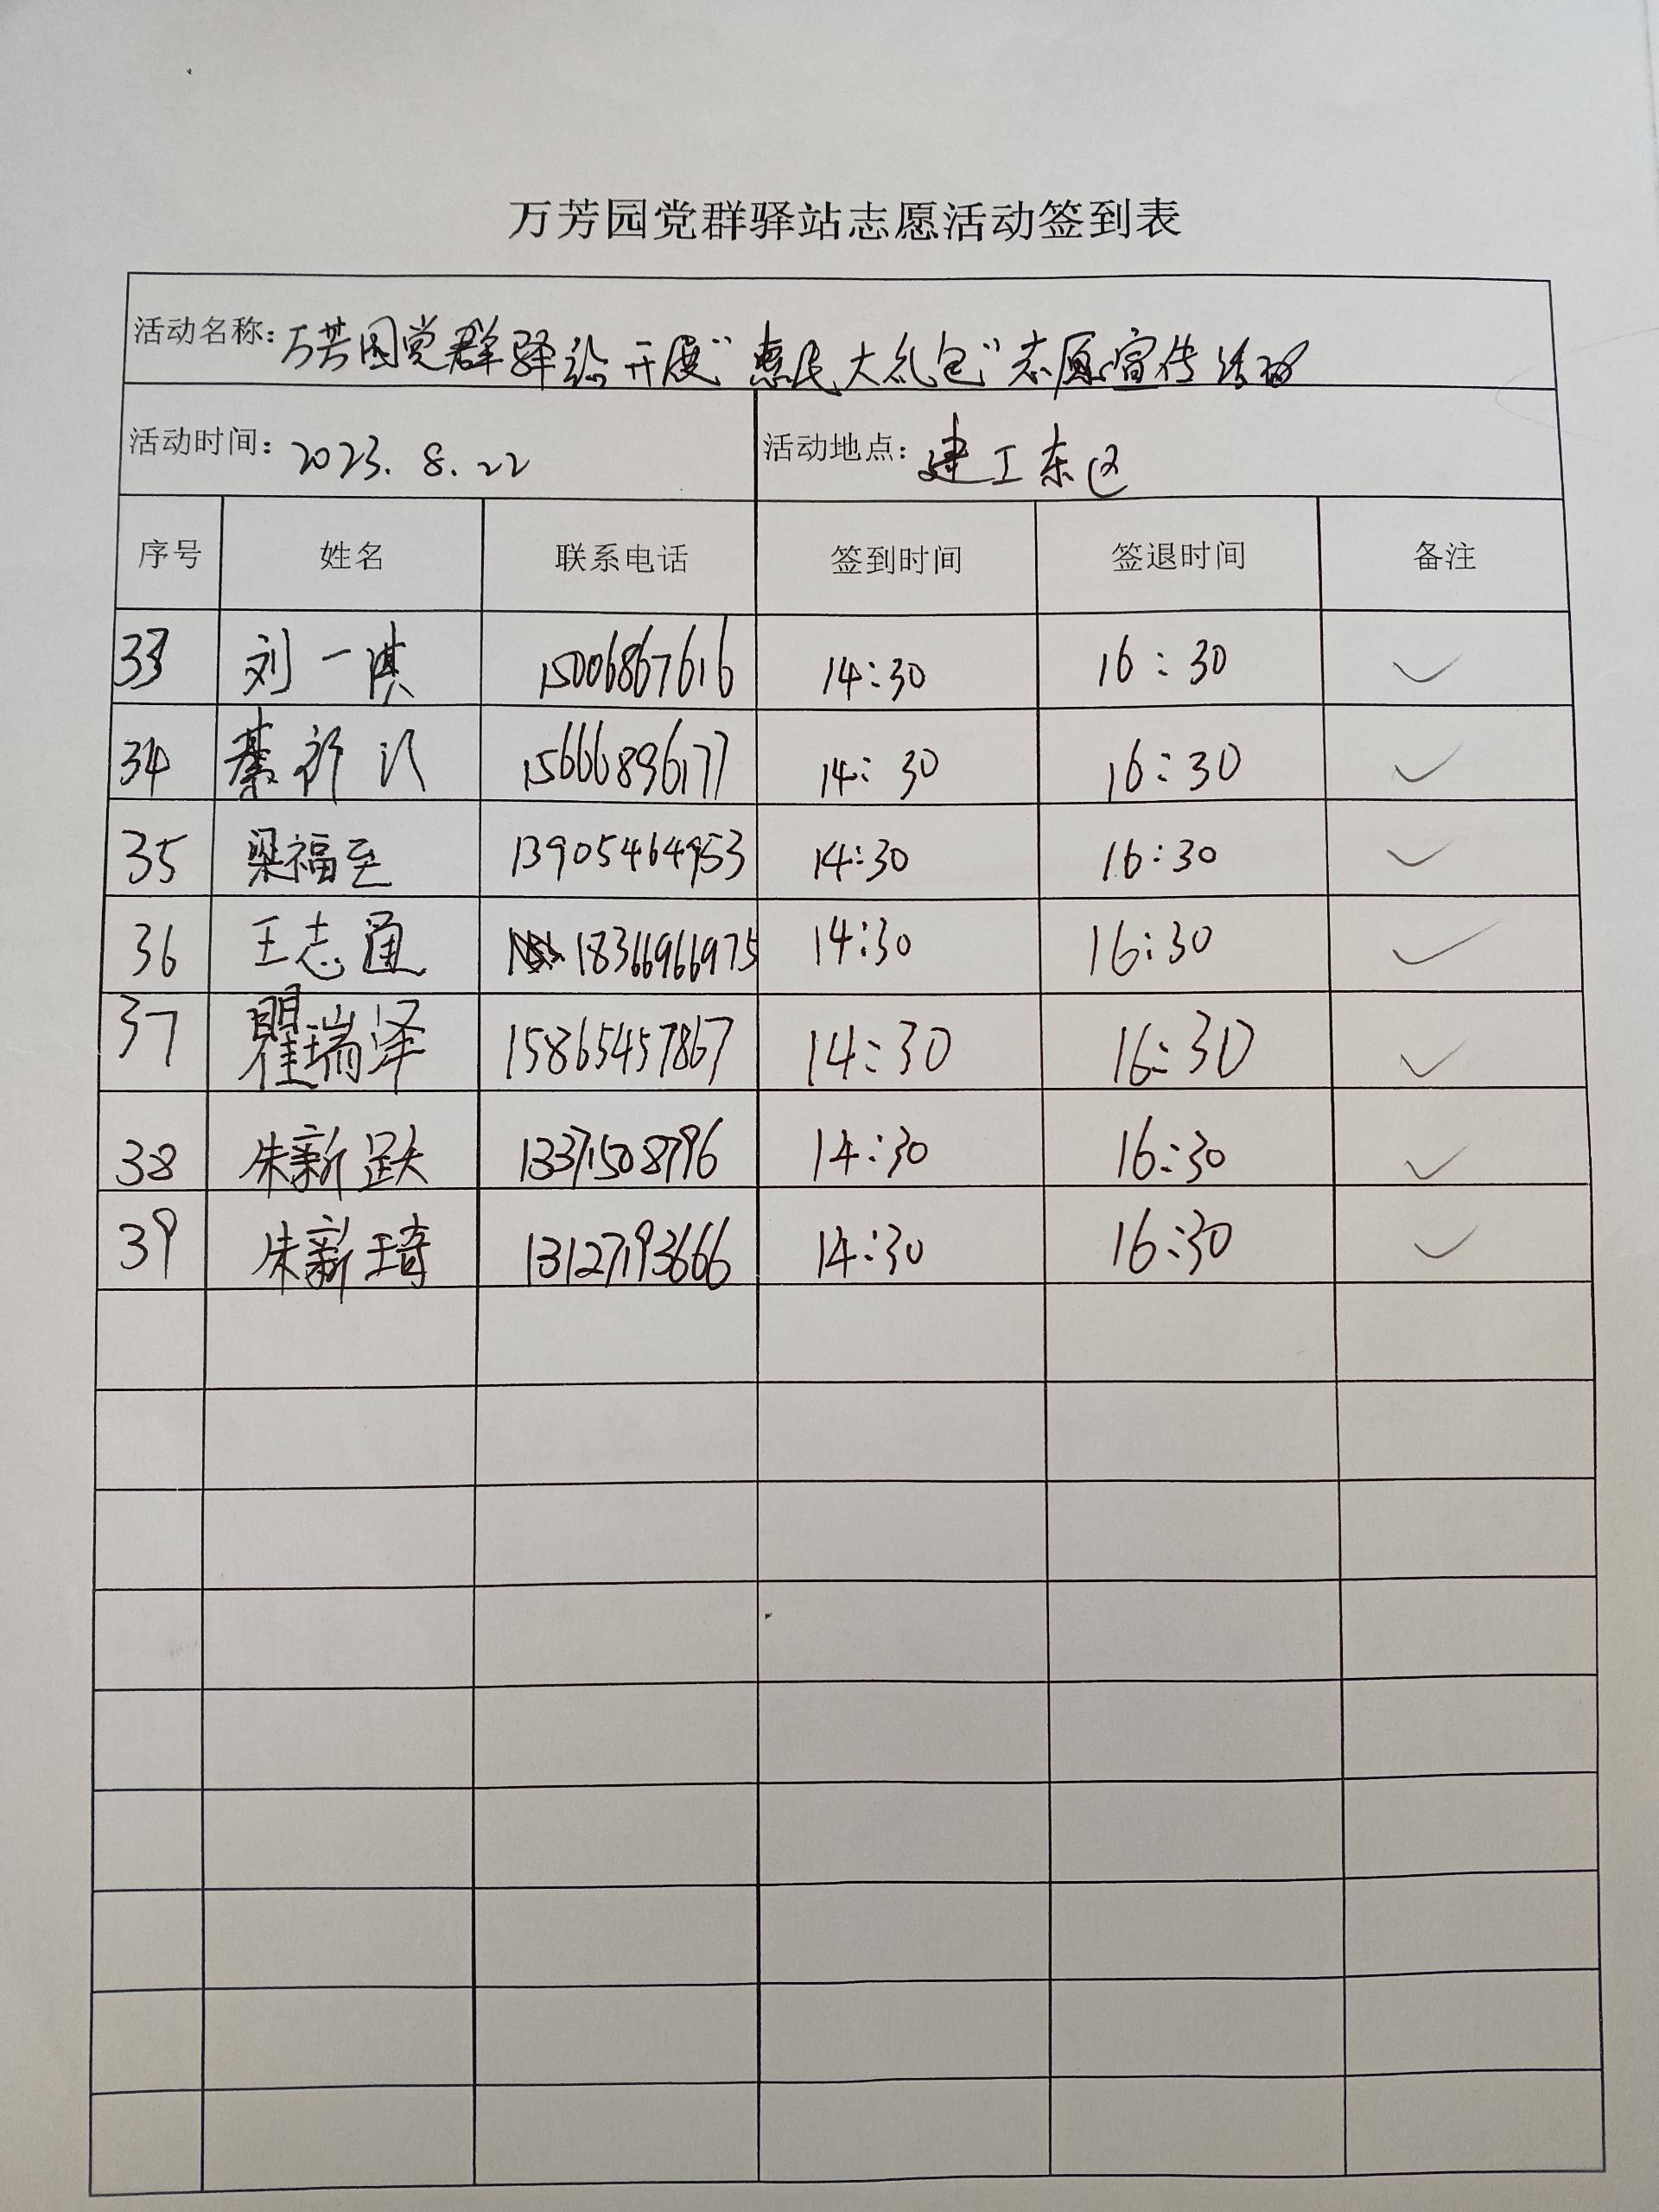 万芳园党群驿站志愿活动签到表
活动名称：万芳园党群驿站开展"惠民大礼包"志愿宣传活动
活动时间：2023.8.22 活动地点：建工东区
序号 姓名 联系电话 签到时间 签退时间 备注
33 刘一淇 15006867616 14:30 16:30 ✓
34 綦 15666896177 14:30 16:30 ✓
35 梁福至 13905464953 14:30 16:30 ✓
36 王志通 18366966975 14:30 16:30 ✓
37 瞿瑞泽 15865457867 14:30 16:30 ✓
38 朱新跃 13371508796 14:30 16:30 ✓
39 朱新琦 13127193666 14:30 16:30 ✓